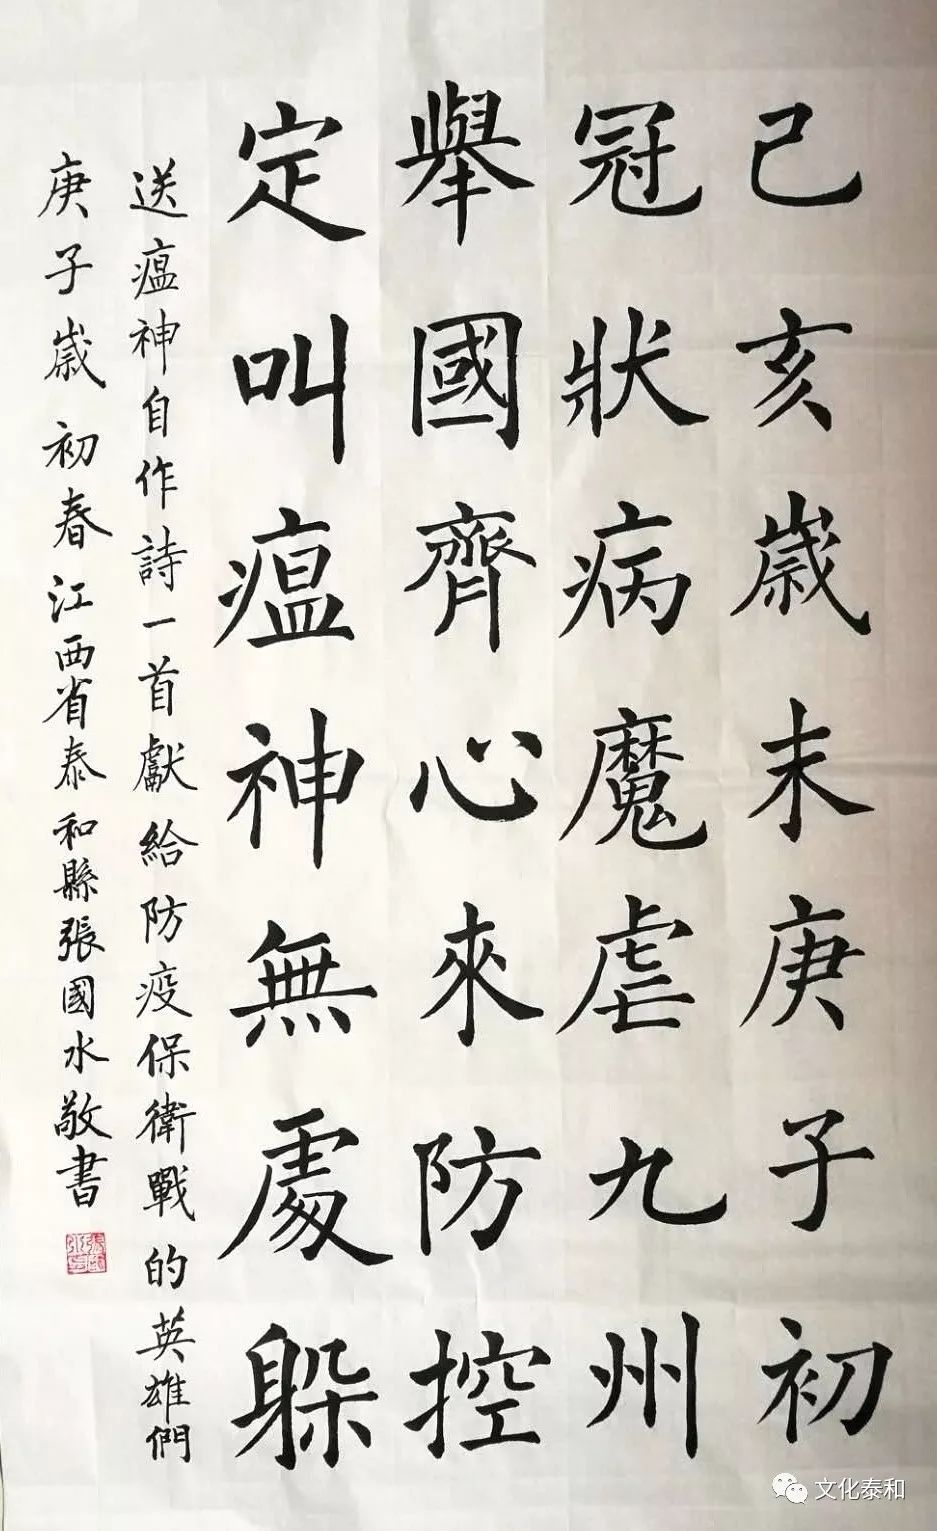 己亥歲末庚子初
冠狀病魔虐九州
舉國齊心來防控
定叫瘟神無處躲
送瘟神自作詩一首獻給防疫保衛戰的英雄們
庚子歲初春江西省泰和縣張國水敬書
文化泰和